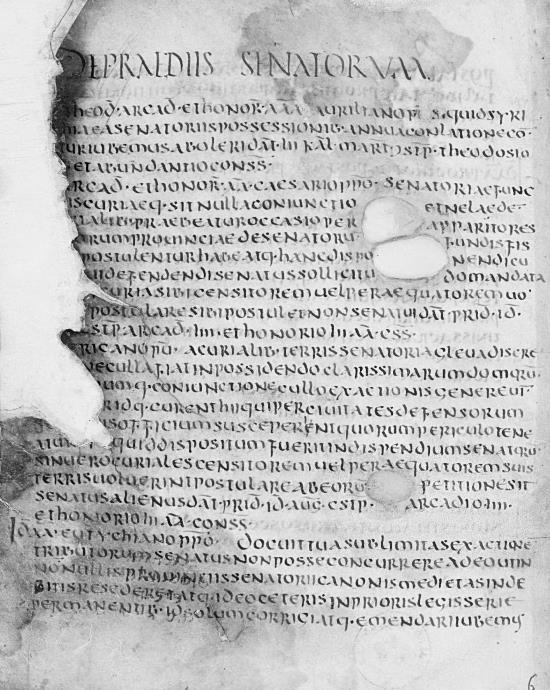 DE PRAEDIIS SENATORUM
theod· arcad· et honor· aaa aurelianopu· s
senatoriis possessionib· annua conlatione co
iubemus aboleri dat· iii kal· mart· stp· theodosio
et abundantio conss·
arcad· et honor· aa caesarioppo· senatoriae func
curiaeq· sit nulla coniunctio et ne laede
praebeatur occasio per apparitores
rum provinciae de senatoru fundis fis
postulentur habeatq· hanc dispo nendi cu
defendendi senatus sollicitu do mandata
curia sibi censitorem uel peraequatorem uo
postulare sibi postulet non senatui dat· prid· id·
stp· arcad· iiii· et honorio iii aa css·
ricano pu· a curialib· terris senatoria gleua discre
ne culla fiat in possidendo clarissimarum domoru
umq· coniunctione cullo exactionis genere ut
curent hii qui per ciuitates defensorum
officium susceperint quorum periculo tene
quid dispositum fuerit in dispendium senatoru
sin uero curiales censitorem uel peraequatorem suis
terris uoluerint postulare ab eoru petitione sit
senatus alienus dat· prid· id· aug· cstp· arcadio iiii·
et honorio iii aa conss
idaa· eutychiano ppo· docuit tua sublimitas exactione
tributorum senatus non posse concurrere adeo ut in
nonnullis provinciis senatorii canonis medietas in de
bitis resederit atq· ideo ceteris in prioris legis serie
permanentib· id solum corrigi atq· emendari iubemus
6